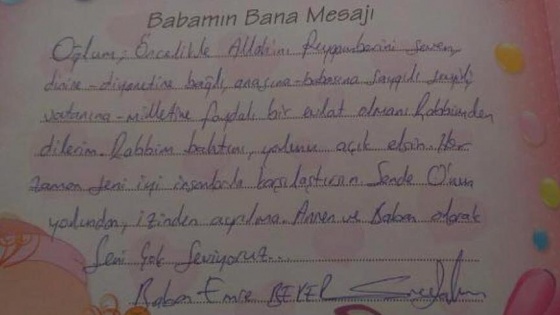 Babamın Bana Mesajı
Oğlum, Öncelikle Allahını Peygamberini seven
dinine-diyanetine bağlı, anasına-babasına saygılı sevgili,
vatanına-milletine faydalı bir evlat olmanı Rabbimden
dilerim. Rabbim bahtını, yolunu açık etsin. Her
zaman seni iyi insanlarla karşılaştırsın. Sende O'nun
yolundan, izinden ayrılma. Annen ve Baban olarak
Seni Çok Seviyoruz...
Baban Emre